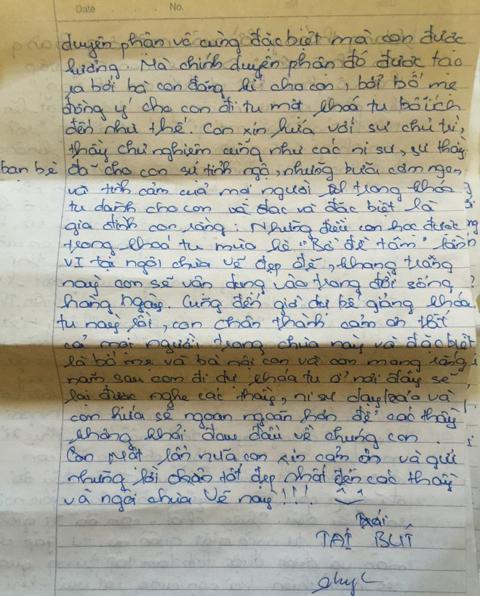 Date No.
duyên phận vô cùng đặc biệt mà con được
hưởng. Mà chính duyên phận đó được tạo
ra bởi bà con đăng kí cho con, bởi bố mẹ
đồng ý cho con đi tu một khoá tu bổ ích
đến như thế. Con xin hứa với sư chủ trì,
thầy chủ nghiêm cũng như các ni sư, sư thầy
bạn bè đã cho con sự tỉnh ngộ, những bữa cơm ngon
và tình cảm của mọi người trong khoá
tu dành cho con và đặc biệt là
gia đình con rằng: Những điều con học được
trong khoá tu mùa hè "Bồ đề tâm" lần
VI tại ngôi chùa Vẽ đẹp đẽ, khang trang
này con sẽ vận dụng vào trong đời sống
hàng ngày. Cũng đến giờ dự bế giảng khóa
tu này rồi, con chân thành cảm ơn tất
cả mọi người trong chùa này và đặc biệt
là bố mẹ và bà nội con và con mong rằng
năm sau con đi dự khóa tu ở nơi đây sẽ
lại được nghe các thầy, ni sư dạy bảo và
con hứa sẽ ngoan ngoãn hơn để các thầy
không phải đau đầu về chúng con.
Con Một lần nữa con xin cảm ơn và gửi
những lời chào tốt đẹp nhất đến các thầy
và ngôi chùa Vẽ này!!! ^^
Trại
TÁI BÚT